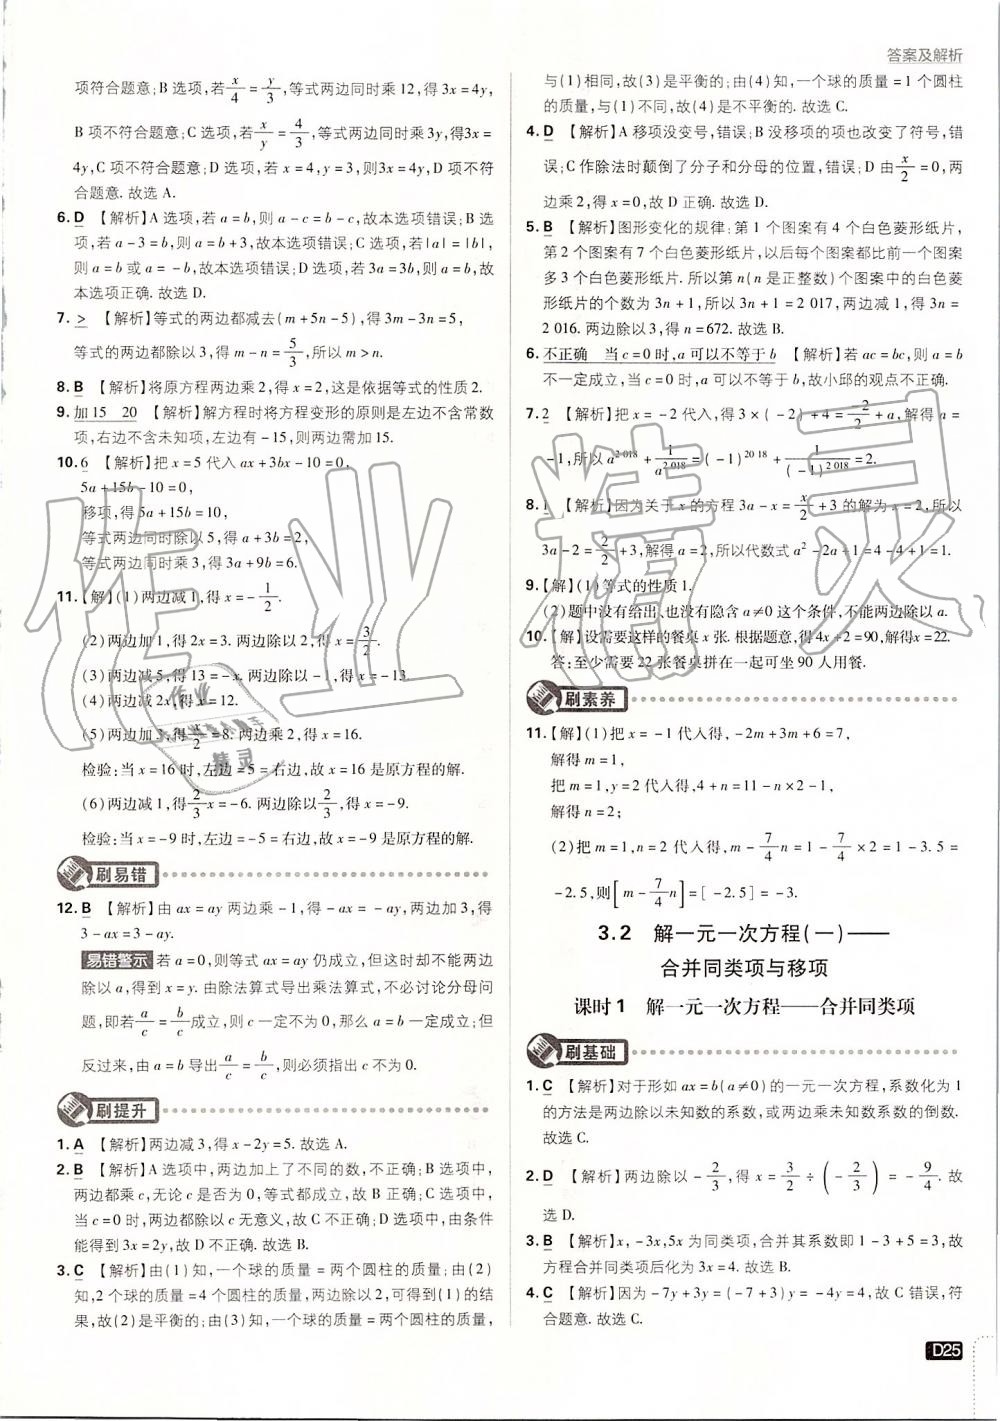 答案及解析
项符合题意;B 选项,若 x/4 = y/3 ,等式两边同时乘 12,得 3x=4y,
B 项不符合题意;C 选项,若 x/y = 4/3 ,等式两边同时乘 3y,得3x=
4y,C 项不符合题意;D 选项,若 x=4,y=3,则3x=4y,D 项不符
合题意. 故选 A.
6. D 【解析】A 选项,若 a=b,则 a-c=b-c,故本选项错误;B 选
项,若 a-3=b,则 a=b+3,故本选项错误;C 选项,若|a|=|b|,
则 a=b 或 a=-b,故本选项错误;D 选项,若 3a=3b,则 a=b,故
本选项正确. 故选 D.
7. > 【解析】等式的两边都减去(m+5n-5),得 3m-3n=5,
等式的两边都除以 3,得 m-n= 5/3 ,所以 m>n.
8. B 【解析】将原方程两边乘 2,得 x=2,这是依据等式的性质 2.
9. 加 15 20 【解析】解方程时将方程变形的原则是左边不含常数
项,右边不含未知项,左边有-15,则两边需加 15.
10. 6 【解析】把 x=5 代入 ax+3bx-10=0,得
5a+15b-10=0,
移项,得 5a+15b=10,
等式两边同时除以 5,得 a+3b=2,
等式两边同时乘 3,得 3a+9b=6.
11. 【解】(1)两边减 1,得 x=- 1/2 .
(2)两边加 1,得 2x=3. 两边除以 2,得 x= 3/2 .
(3)两边减 5,得 13=-x. 两边除以-1,得 x=-13.
(4)两边减 2x,得 x=12.
(5)两边加 3,得 x/2 =8. 两边乘 2,得 x=16.
检验:当 x=16 时,左边=5=右边,故 x=16 是原方程的解.
(6)两边减 1,得 2/3 x=-6. 两边除以 2/3 ,得 x=-9.
检验:当 x=-9 时,左边=-5=右边,故 x=-9 是原方程的解.
刷易错
12. B 【解析】由 ax=ay 两边乘-1,得-ax=-ay,两边加 3,得
3-ax=3-ay.
易错警示 若 a=0,则等式 ax=ay 仍成立,但这时却不能两边
除以 a,得到 x=y. 由除法算式导出乘法算式,不必讨论分母问
题,即若 a/c = b/c 成立,则 c 一定不为 0,那么 a=b 一定成立;但
反过来,由 a=b 导出 a/c = b/c ,则必须指出 c 不为 0.
刷提升
1. A 【解析】两边减 3,得 x-2y=5. 故选 A.
2. B 【解析】A 选项中,两边加上了不同的数,不正确;B 选项中,
两边都乘 c,无论 c 是否为 0,等式都成立,故 B 正确;C 选项中,
当 c=0 时,两边都除以 c 无意义,故 C 不正确;D 选项中,由条件
能得到 3x=2y,故 D 不正确. 故选 B.
3. C 【解析】由(1)知,一个球的质量=两个圆柱的质量,由(2)
知,2 个球的质量=4 个圆柱的质量,两边除以 2,可得到(1)的结
果,故(2)是平衡的;由(3)知,一个球的质量=两个圆柱的质量,
与(1)相同,故(3)是平衡的;由(4)知,一个球的质量=1 个圆柱
的质量,与(1)不同,故(4)是不平衡的. 故选 C.
4. D 【解析】A 移项没变号,错误;B 没移项的项也改变了符号,错
误;C 作除法时颠倒了分子和分母的位置,错误;D 由 x/2 =0,两
边乘 2,得 x=0,故 D 正确. 故选 D.
5. B 【解析】图形变化的规律:第 1 个图案有 4 个白色菱形纸片,
第 2 个图案有 7 个白色菱形纸片,以后每个图案都比前一个图案
多 3 个白色菱形纸片. 所以第 n(n 是正整数)个图案中的白色菱
形纸片的个数为 3n+1,所以 3n+1=2 017,两边减 1,得 3n=
2 016. 两边除以 3,得 n=672. 故选 B.
6. 不正确 当 c=0 时,a 可以不等于 b 【解析】若 ac=bc,则 a=b
不一定成立,当 c=0 时,a 可以不等于 b,故小邱的观点不正确.
7. 2 【解析】把 x=-2 代入,得 3×(-2)+4= -2/2 +a,解得 a=
-1,所以 a^2 018 + 1/a^2 018 =(-1)^20 18 + 1/(-1)^2 018 =2.
8. 1 【解析】因为关于 x 的方程 3a-x= x/2 +3 的解为 x=2,所以
3a-2= 2/2 +3,解得 a=2,所以代数式 a²-2a+1=4-4+1=1.
9. 【解】(1)等式的性质 1.
(2)题中没有给出、也没有隐含 a≠0 这个条件,不能两边除以 a.
10. 【解】设需要这样的餐桌 x 张. 根据题意,得 4x+2=90,解得x=22.
答:至少需要 22 张餐桌拼在一起可坐 90 人用餐.
刷素养
11. 【解】(1)把 x=-1 代入得,-2m+3m+6=7,
解得 m=1,
把 m=1,y=2 代入得,4+n=11-n×2-1,
解得 n=2;
(2)把 m=1,n=2 代入得,m- 7/4 n=1- 7/4 ×2=1-3.5=
-2.5,则[m- 7/4 n]=[-2.5]=-3.
3.2 解一元一次方程(一)——
合并同类项与移项
课时 1 解一元一次方程——合并同类项
刷基础
1. C 【解析】对于形如 ax=b(a≠0)的一元一次方程,系数化为 1
的方法是两边除以未知数的系数,或两边乘未知数系数的倒数.
故选 C.
2. D 【解析】两边除以 - 2/3 ,得 x= 3/2 ÷(- 2/3)=- 9/4 . 故
选 D.
3. B 【解析】x,-3x,5x 为同类项,合并其系数即 1-3+5=3,故
方程合并同类项后化为 3x=4. 故选 B.
4. C 【解析】因为-7y+3y=(-7+3)y=-4y=4,故 C 错误,符
合题意. 故选 C.
D25
作业精灵